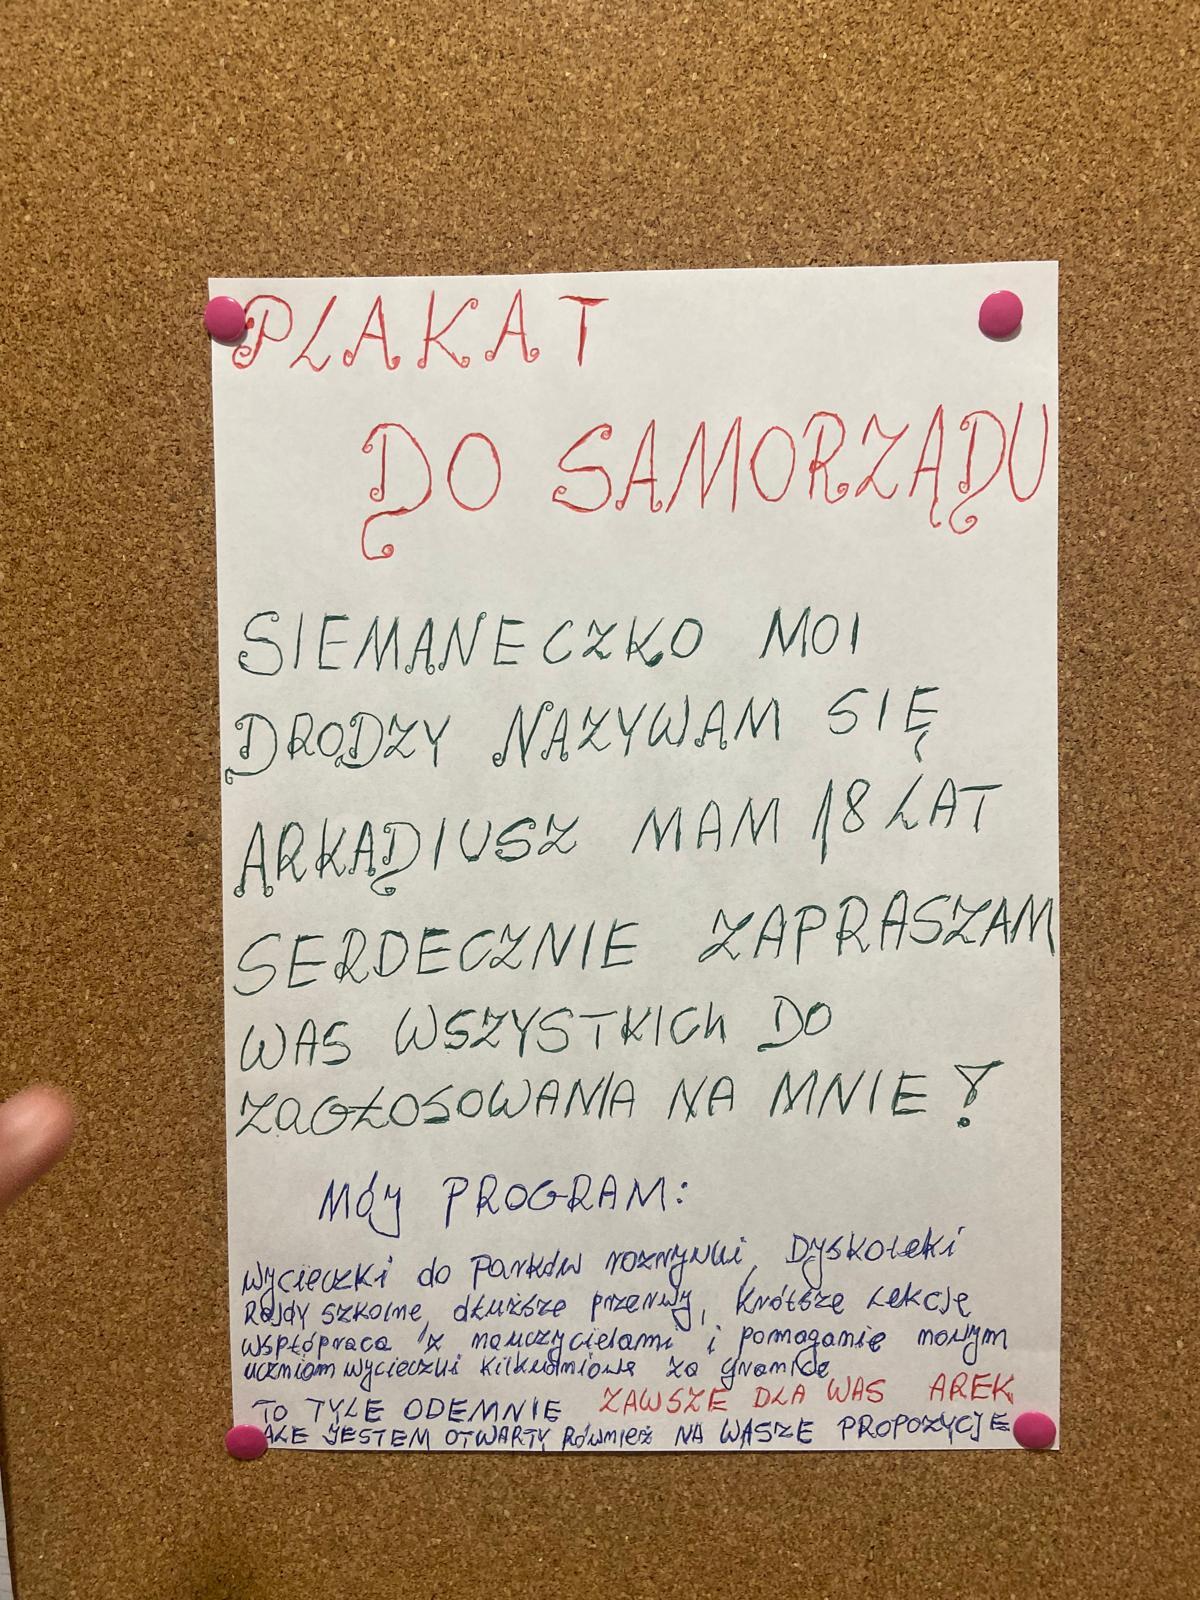 PLAKAT
DO SAMORZĄDU
SIEMANECZKO MOI
DRODZY NAZYWAM SIĘ
ARKADIUSZ MAM 18 LAT
SERDECZNIE ZAPRASZAM
WAS WSZYSTKICH DO
ZAGŁOSOWANIA NA MNIE!
Mój PROGRAM:
Wycieczki do Parków rozrywki, Dyskoteki
Rajdy szkolne, dłuższe przerwy, krótsze lekcje
współpraca z nauczycielami i pomaganie nowym
uczniom wycieczki kilkudniowe za granicę
TO TYLE ODEMNIE ZAWSZE DLA WAS AREK
ALE JESTEM OTWARTY RÓWNIEŻ NA WASZE PROPOZYCJE